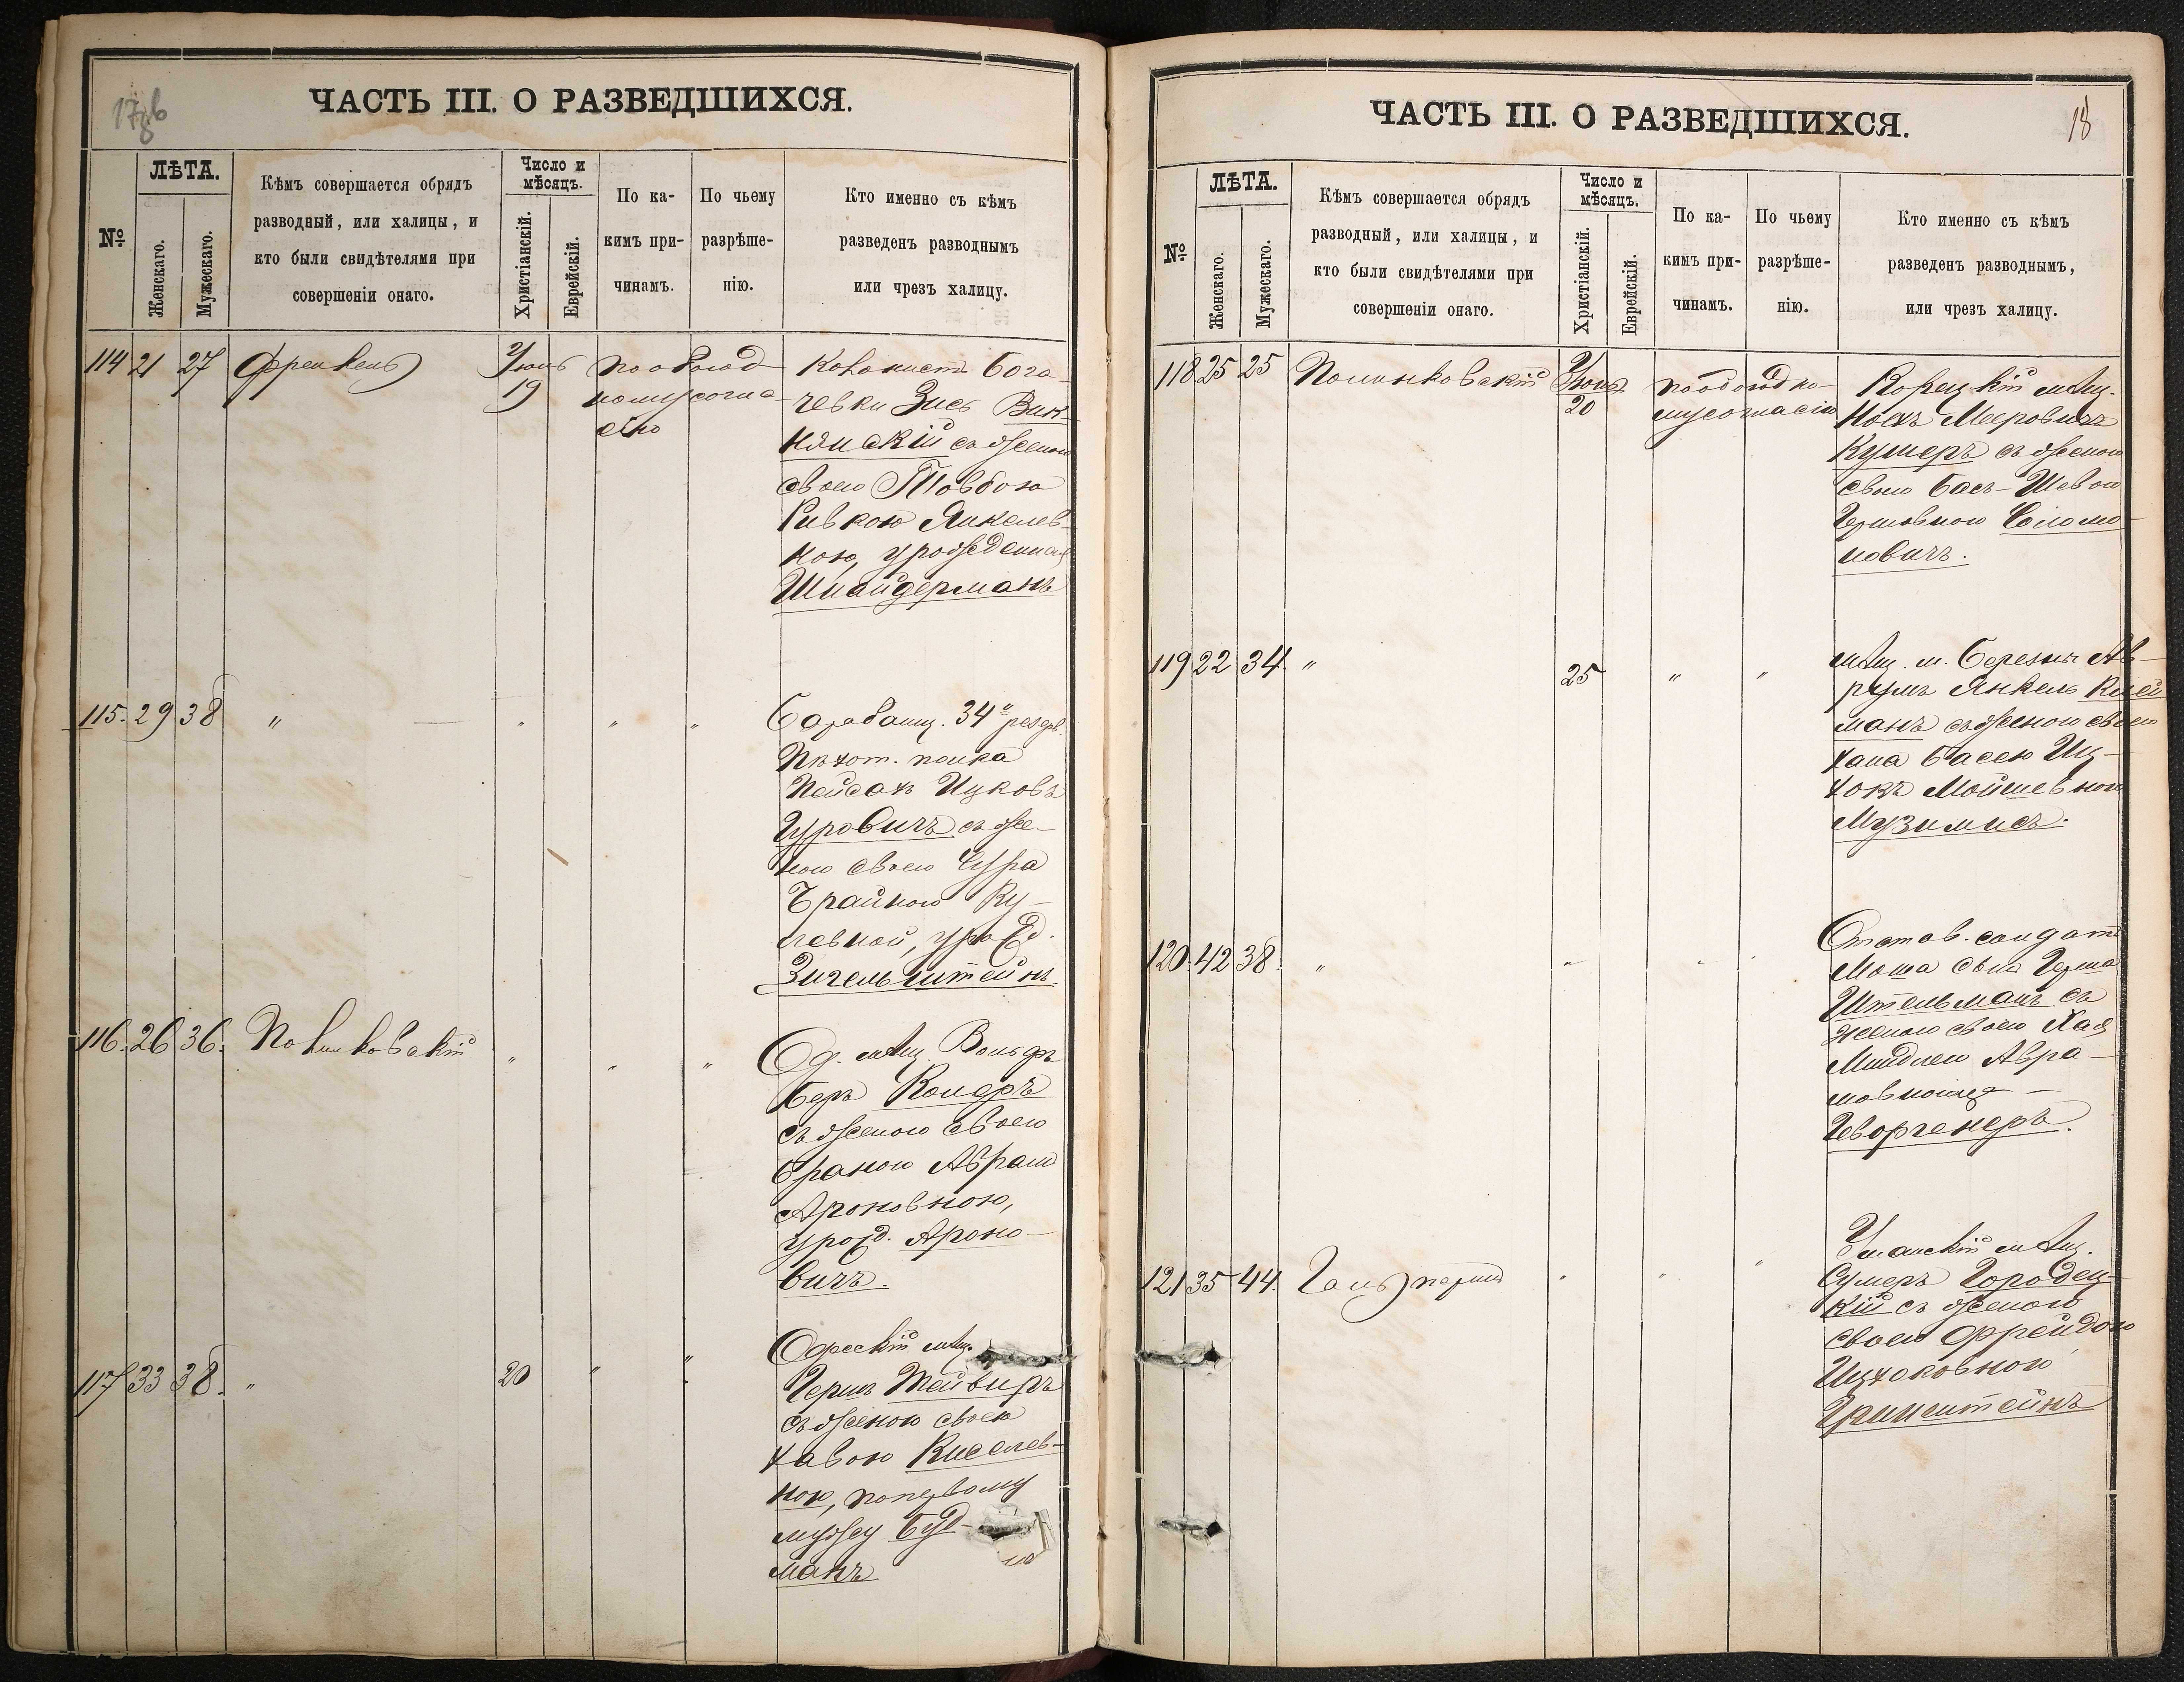 ЧАСТЬ III. О РАЗВЕДШИХСЯ.
№
ЛѢТА.
Женскаго.
Мужескаго.
Кѣмъ совершается обрядъ
разводный, или халицы, и
кто были свидѣтелями при
совершеніи онаго.
Число и
мѣсяцъ.
Христіанскій.
Еврейскій.
По ка-
кимъ при-
чинамъ.
По чьему
разрѣше-
нію.
Кто именно съ кѣмъ
разведенъ разводнымъ
или чрезъ халицу.
114 21 27 Френкель Іюнь 19 по обоюд
ному согла
сію
Колонистъ Бога-
чевки Зись Вин-
нянскій съ женою
своею Товбою
Ривкою Янкелев-
ною, урожденная
Шнайдерманъ
115. 29 38 " " " "
Барабанщ. 34го резерв.
Пѣхот. полка
Пейсахъ Ицковъ
Гуровичъ съ же-
ною своею Сура
Брайною
левной, урожд.
Зигельштейнъ
116. 26 36. Полинковскій " " "
Од. мѣщ. Вольфъ
Беръ Кондръ
съ женою своею
Браною Абрам
Ароновною,
урожд. Ароно-
вичъ.
117 33 38. " 20 " "
Одесскій мѣщ.
Гершъ Тейвиръ
съ женою своею
Хавою Киселев-
ною, по первому
мужу Буд-
манъ
ЧАСТЬ III. О РАЗВЕДШИХСЯ.
18
№
ЛѢТА.
Женскаго.
Мужескаго.
Кѣмъ совершается обрядъ
разводный, или халицы, и
кто были свидѣтелями при
совершеніи онаго.
Число и
мѣсяцъ.
Христіанскій.
Еврейскій.
По ка-
кимъ при-
чинамъ.
По чьему
разрѣше-
нію.
Кто именно съ кѣмъ
разведенъ разводнымъ,
или чрезъ халицу.
118 25 25 Полинковскій Іюнь 20 по обоюдно-
му согласію
Корецкій мѣщ.
Ноахъ Мееровичъ
Кушеръ съ женою
своею Бась-Шевою
Гершовною Соломо-
новичъ.
119 22 34. " 25 " "
мѣщ. м. Березны Ав-
румъ Янкель Клей
манъ съ женою своею
Хана Басею Иц-
хокъ Мойшевною
Музимисъ.
120. 42 38. " " " "
Отстав. солдатъ
Моша сынъ Герша
Штельманъ съ
женою своею Хая
Миндлею Авра-
мовною
Геворгенеръ.
121 35 44. Гальперинъ " " "
Уманскій мѣщ.
Сумеръ Городец-
кій съ женою
своею Фрейдою
Ицхоковной
Гринштейнъ